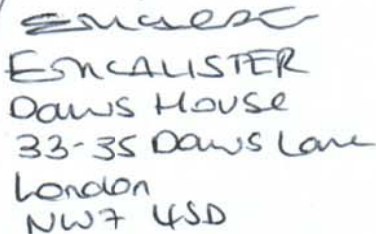 ESMCALISTER
Daws House
33-35 Daws Lane
London
NW7 4SD